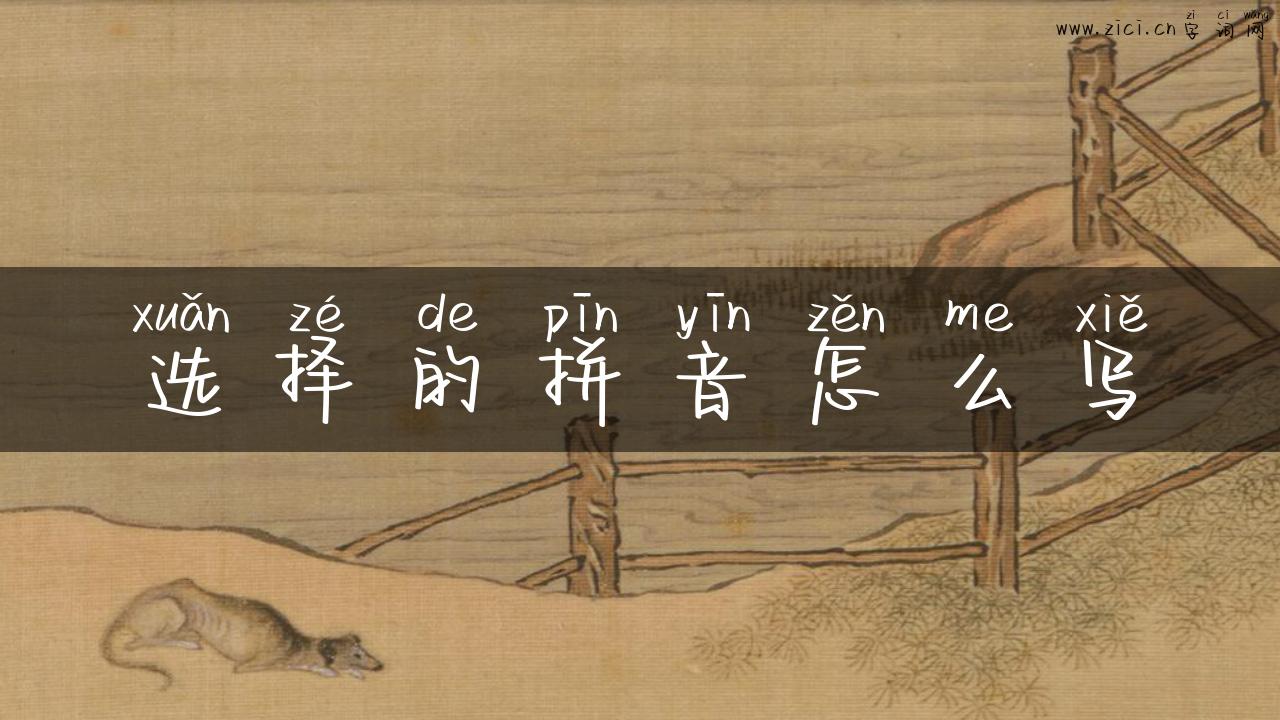 zi ci wang
www.zici.cn 字词网
xuǎn zé de pīn yīn zěn me xiě
选择的拼音怎么写